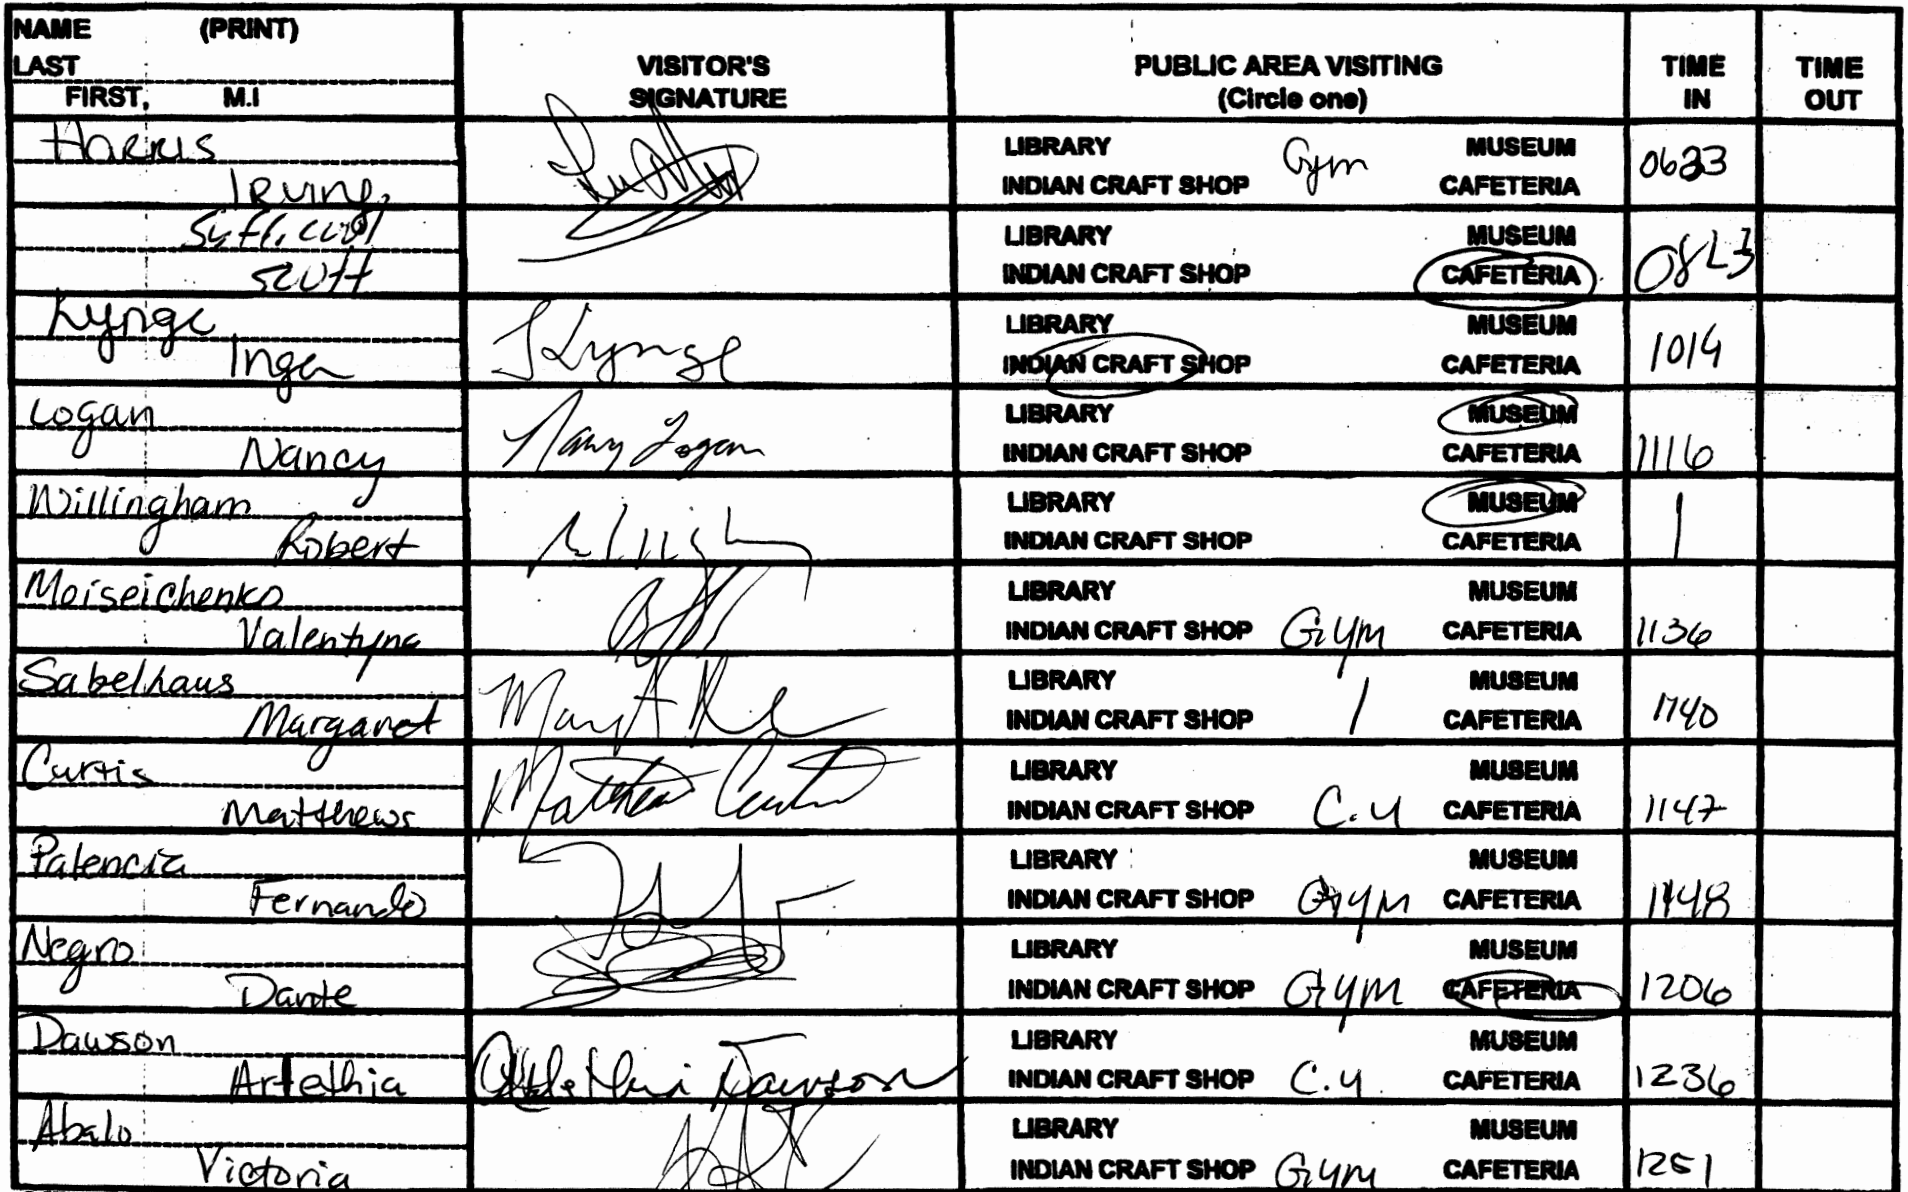 NAME (PRINT)
LAST
FIRST, M.I
VISITOR'S
SIGNATURE
PUBLIC AREA VISITING
(Circle one)
TIME
IN
TIME
OUT
Harris
Irving,
LIBRARY MUSEUM
INDIAN CRAFT SHOP Gym CAFETERIA
0623
Scott
LIBRARY MUSEUM
INDIAN CRAFT SHOP CAFETERIA
0823
Kynge
Inga
I Kynge
LIBRARY MUSEUM
INDIAN CRAFT SHOP CAFETERIA
1014
Logan
Nancy
Nancy Logan
LIBRARY MUSEUM
INDIAN CRAFT SHOP CAFETERIA
1116
Willingham
Robert
LIBRARY MUSEUM
INDIAN CRAFT SHOP CAFETERIA
|
Moiseichenko
Valentyna
LIBRARY MUSEUM
INDIAN CRAFT SHOP Gym CAFETERIA
1136
Sabelhaus
Margaret
LIBRARY MUSEUM
INDIAN CRAFT SHOP | CAFETERIA
1140
Curtis
Matthews
Matthew Curtis
LIBRARY MUSEUM
INDIAN CRAFT SHOP C.U CAFETERIA
1147
Palencia
Fernando
LIBRARY MUSEUM
INDIAN CRAFT SHOP Gym CAFETERIA
1148
Negro
Dante
LIBRARY MUSEUM
INDIAN CRAFT SHOP Gym CAFETERIA
1206
Dawson
Artethia
Artethia Dawson
LIBRARY MUSEUM
INDIAN CRAFT SHOP C.U. CAFETERIA
1236
Abalo
Victoria
LIBRARY MUSEUM
INDIAN CRAFT SHOP Gym CAFETERIA
1251